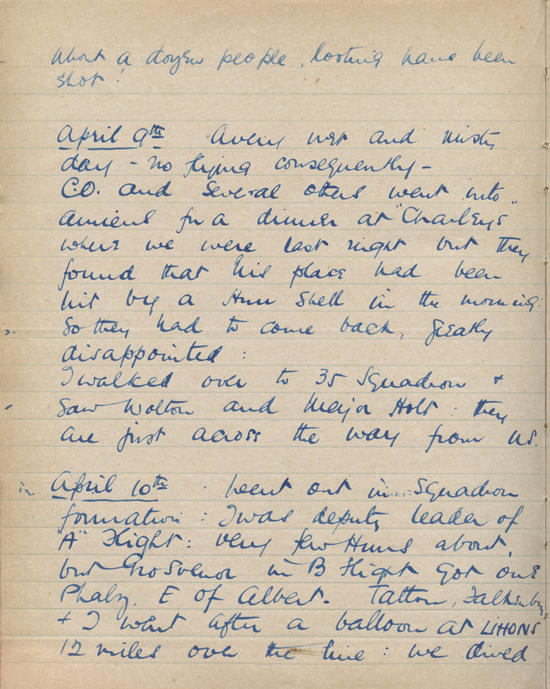 About a dozen people, looting have been
shot!
April 9th A very wet and misty
day - no flying consequently -
C.O. and several others went into
Amiens for a dinner at "Charleys"
where we were last night but they
found that his place had been
hit by a Hun shell in the morning:
So they had to come back, greatly
disappointed:
I walked over to 35 Squadron +
saw Wolton and Major Holt: they
are just across the way from us.
April 10th. Went out in... Squadron
formation: I was deputy leader of
"A" Flight: very few Huns about,
but Grosvenor in B Flight got one
Phalz. E of Albert. Tatton, Falkenberg
+ I went after a balloon at LIHONS
12 miles over the line: we dived